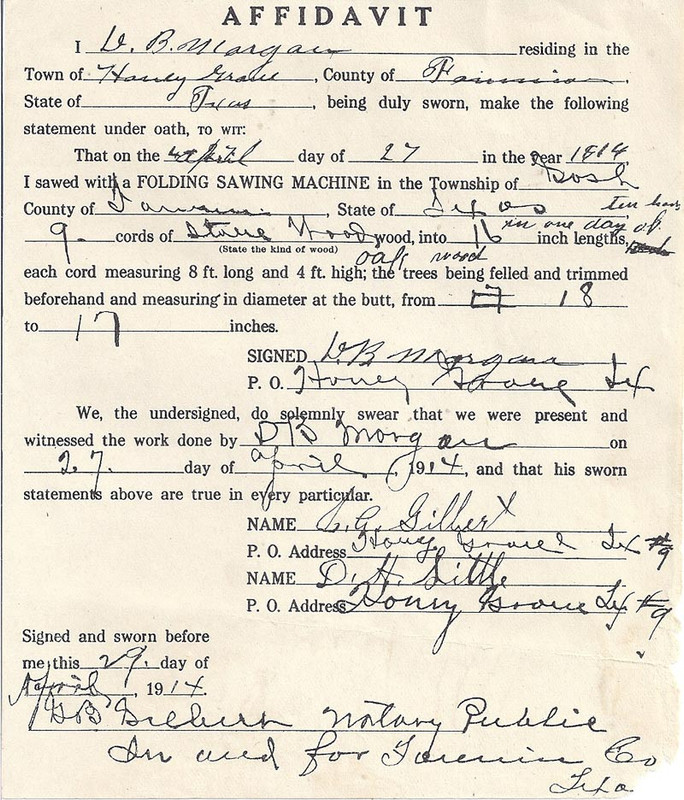 AFFIDAVIT
I D. B. Morgan residing in the
Town of Honey Grove, County of Fannin,
State of Texas, being duly sworn, make the following
statement under oath, TO WIT:
That on the April day of 27 in the year 1914,
I sawed with a FOLDING SAWING MACHINE in the Township of
County of Fannin, State of Texas ten hours
in one day of
9 cords of Stove Wood wood, into 16 inch lengths,
(State the kind of wood)
oak wood
each cord measuring 8 ft. long and 4 ft. high; the trees being felled and trimmed
beforehand and measuring in diameter at the butt, from 18
to 17 inches.
SIGNED D. B Morgan
P. O. Honey Grove Tex
We, the undersigned, do solemnly swear that we were present and
witnessed the work done by D B Morgan on
27. day of April, 1914, and that his sworn
statements above are true in every particular.
NAME G. Gilbert
P. O. Address Honey Grove Tex #9
NAME D. H. Little
P. O. Address Honey Grove Tex #9
Signed and sworn before
me this 29. day of
April, 1914.
Notary Public
In and for Fannin Co
Texa